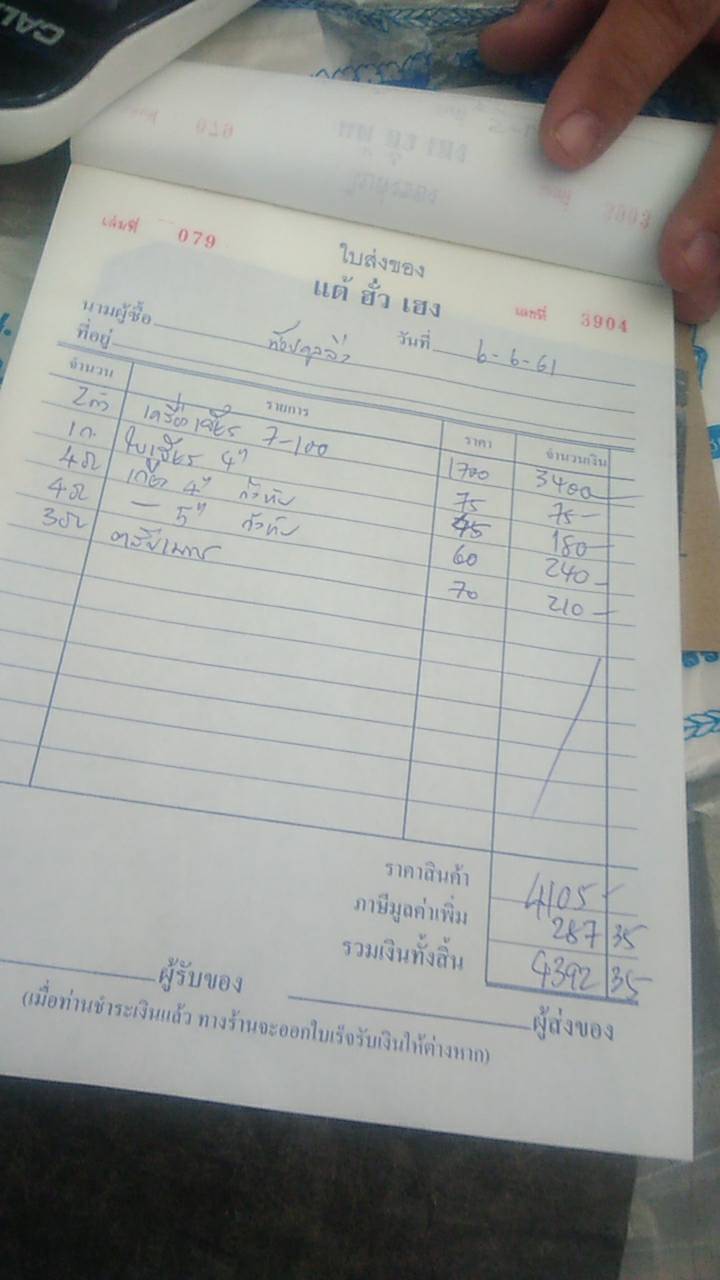 CAL
เล่มที่ 079
ใบส่งของ
แต้ ฮั่ว เฮง
เลขที่ 3904
นามผู้ซื้อ วันที่ 6-6-61
ที่อยู่
จำนวน รายการ ราคา จำนวนเงิน
2 ตัว เครื่องเจียร 7-100 1700 3400
1 ก. ใบเจียร 4" 75 75-
4 4" 45 180-
4 - 5" 60 240-
3 ตลับเมตร 70 210-
ราคาสินค้า 4105-
ภาษีมูลค่าเพิ่ม 287 35
รวมเงินทั้งสิ้น 4392 35
ผู้รับของ ผู้ส่งของ
(เมื่อท่านชำระเงินแล้ว ทางร้านจะออกใบเร็จรับเงินให้ต่างหาก)